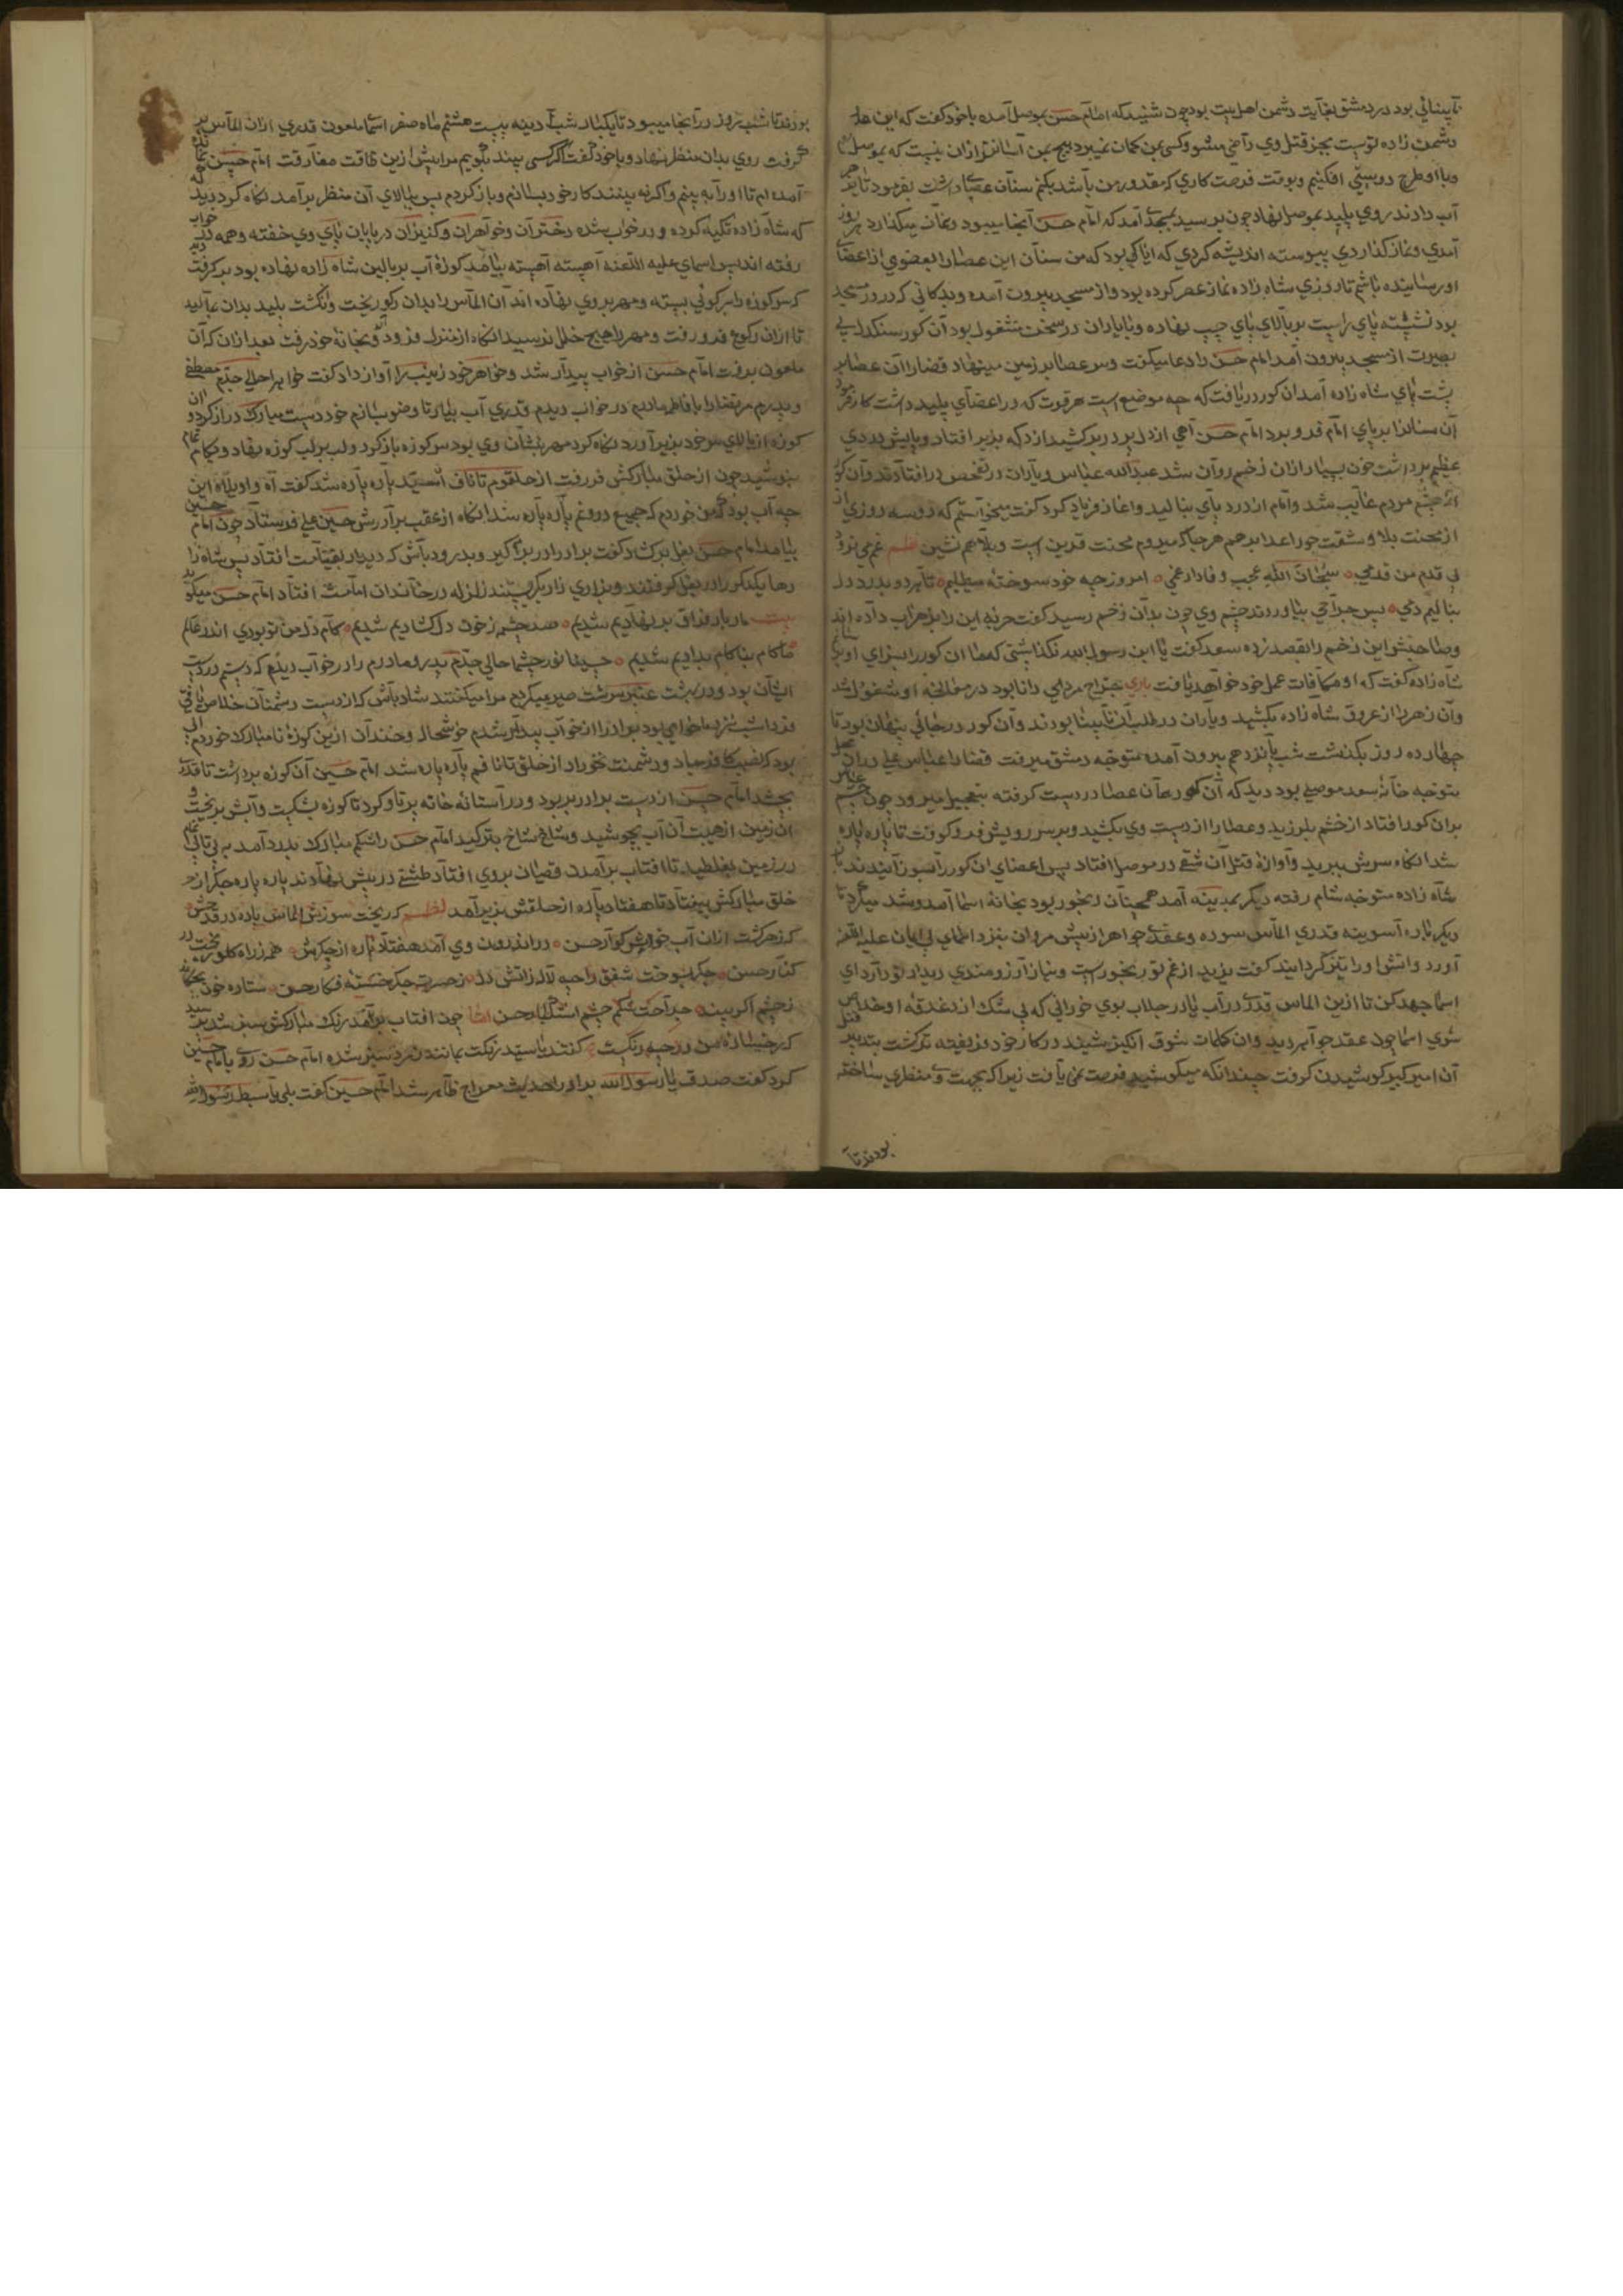 نابینائی بود در دمشق بغایت دشمن اهل بیت بود چون شنید که امام حسن بموصل آمده با خود گفت که این
دشمن زاده تست بجز قتل وی راضی مشو و کسی بمن گمان نمیبرد هیچ بمن آسانتر ازان نیست که بموصل
و با او طرح دوستی افکنیم و بوقت فرصت کاری که مقدور من باشد بکنم سنان عصا داشت بفرمود تا بزهر
آب دادند روی پلید بموصل نهاد چون برسید بمسجد آمد که امام حسن آنجا میبود و نماز میگذارد هر روز
آمدی و نماز گذاردی پیوسته اندیشه کردی که ایا کی بود که من سنان این عصا را بعضوی از اعضای
او رساننده باشم تا روزی شاه زاده نماز عصر کرده بود و از مسجد بیرون آمده و بدکانی که در در مسجد
بود نشسته پای راست بر بالای پای چپ نهاده و با یاران در سخن مشغول بود آن کور سنگدل بی
بصیرت از مسجد بیرون آمد امام حسن را دعا میگفت و سر عصا بر زمین مینهاد قضا را آن عصا بر
پشت پای شاه زاده آمد آن کور دریافت که چه موضع است هر قوت که در اعضای پلید داشت کار فرمود
آن سنان را بر پای امام فرو برد امام حسن آهی از دل پر درد بر کشید از دکه بزیر افتاد و پایش بدردی
عظیم برداشت خون بسیار ازان زخم روان شد عبدالله عباس و یاران در تفحص در افتادند و آن کور
از چشم مردم غایب شد و امام از درد پای بنالید و اغاز فریاد کرد گفت میخواستم که دو سه روزی از
از محنت بلا و مشقت جور اعدا برهم هر جا که میروم محنت قرین است و بلا هم نشین نظم غم می نرود
بی قدم من قدمی سبحان الله عجب وفادار غمی امروز چه خود سوخته میطلبم تا بر دو بدرد دل
بنالیم دمی پس جراحی بیاوردند چشم وی چون بدان زخم رسید گفت حربه این را بزهراب داده اند
و صاحبش این زخم را بقصد زده سعد گفت یا ابن رسول الله نگذاشتی که ما آن کور را بسزای او
شاه زاده گفت که او مکافات عمل خود خواهد یافت باری جراح مردی دانا بود در معالجه او مشغول شد
و آن زهر را از عروق شاه زاده بکشید و یاران در طلب آن نابینا بودند و آن کور در جائی پنهان بود تا
چهارده روز بگذشت شب پانزدهم بیرون آمده متوجه دمشق میرفت قضا را عباس علی دران محل
متوجه خانه سعد موصلی بود دید که آن کور همان عصا در دست گرفته بتعجیل میرود چون چشم عباس
بران کور افتاد از خشم بلرزید و عصا را از دست وی بکشید و بر سر رویش فرو کوفت تا پاره پاره
شد انگاه سرش ببرید و آوازه قتل آن شقی در موصل افتاد پس اعضای ان کور را بسوزانیدند
شاه زاده متوجه شام رفته دیگر بمدینه آمد همچنان رنجور بود بخانه اسما آمد و شد میکرد تا
دیگر باره آسوینه قدری الماس سوده و عقدی جواهر از پیش مروان بنزد اسمای بی ایمان علیه اللعنه
آورد و اتش او را تیز گردانید گفت یزید از غم تو رنجور است و نیاز آرزومندی دیدار تو دارد ای
اسما جهد کن تا ازین الماس قدری در آب یا در جلاب بوی خورانی که بی شک از دغدغه او خلاص
شوی اسما چون عقد جواهر دید و ان کلمات شوق انگیز شنید در کار خود فریفته تر گشت بتدبیر قتل
آن امیر کبیر کوشیدن گرفت چندانکه میکوشید فرصت نمی یافت زیرا که بجهت وی منظری ساخته
بودند تا
بودند تا شب و روز در آنجا میبود تا یکبار شب آدینه بیست هشتم ماه صفر اسمای ملعون قدری ازان الماس بر
گرفت روی بدان منظر نهاد و با خود گفت اگر کسی بیند بگویم مرا پیش ازین طاقت مفارقت امام حسن نماند
آمده ام تا او را به بینم و اگر نه بینند کار خود بسازم و باز گردم پس ببالای آن منظر برآمد نگاه کرد دید
که شاه زاده تکیه کرده و در خواب شده دختران و خواهران و کنیزان در پایان پای وی خفته و همه در خواب
رفته اند پس اسمای علیه اللعنه آهسته آهسته بیامد کوزه آب بر بالین شاه زاده نهاده بود بر گرفت دید
که سر کوزه را بر کوئی بسته و مهر بروی نهاده اند آن الماس را بدان رکوی ریخت و انگشت پلید بدان مالید
تا ازان رکوع فرو رفت و مهر را هیچ خللی نرسید انگاه از منزل فرود آمد و بخانه خود رفت بعد ازان که آن
ملعون برفت امام حسن از خواب بیدار شد و خواهر خود زینب را آواز داد گفت خواهر احوال جدم مصطفی
و پدرم مرتضا را با فاطمه مادرم در خواب دیدم قدری آب بیار تا وضو بسازم خود دست مبارک دراز کرد و ان
کوزه از بالای سر خود بزیر آورد نگاه کرد مهر بنشان وی بود سر کوزه باز کرد و لب بر لب کوزه نهاد و بکام تمام
بنوشید چون از حلق مبارکش فرو رفت از حلقوم تا ناف آنسید پاره پاره شد گفت آه واویلاه این
چه آب بود که من خوردم که جمیع درونم پاره پاره شد انگاه از عقب برادرش حسین علی فرستاد چون امام حسین
بیامد امام حسن بغل برگشاد گفت برادر در بر گیر و بدرود باش که دیدار بقیامت افتاد پس شاه را
رها یکدیگر را در بغل گرفتند و بزاری زار بگریستند زلزله در خاندان امامت افتاد امام حسن میگوید
بیت ما بار فراق بر نهادیم شدیم صد چشم ز خون دل گشادیم شدیم کام دل من تو بودی اندر عالم
ناکام بناکام بدادیم شدیم حسینا نور چشما حالی جدم پدر و مادرم را در خواب دیدم که دستم در دست
ایشان بود و در بهشت عنبر سرشت سیر میکردم مرا میگفتند شاد باش که از دست دشمنان خلاص یافتی
فردا شب نزد ما خواهی بود برادر از خواب بیدار شدم خوشحال و خندان ازین کوزه نامبارک خوردم ابی
بود که نصیب کافر مباد و دشمنت نخوراد از خلق تا نافم پاره پاره شد امام حسین آن کوزه برداشت تا قدری
بچشد امام حسن از دست برادر بربود و در آستانه خانه پرتاو کرد تا کوزه بشکست و آبش بریخت و
ان زمین از هیبت آن آب بجوشید و شاخ شاخ بترکید امام حسن را شکم مبارک بدرد آمد بر بی تابی تمام
در زمین بغلطید تا افتاب برآمدن قصیان بروی افتاد طشتی در پیش نهادند پاره پاره جگر از
خلق مبارکش بیفتاد تا هفتاد پاره از حلقش بزیر آمد نظم که ریخت سوزش الماس پاره در قدحش
که زهر گشت ازان آب خوش گوار حسن در اندرون وی آمد هفتاد پاره از جگرش همه ز راه گلو ریخت در
کنار حسن جگر بسوخت شفق را چو لاله ز اتش دل ز حسرت جگر خسته فکار حسن ستاره خون بچکاند
ز چشم اگر بیند جراحت چشم اشکبار حسن القا چون افتاب برآمد رنگ مبارکش سبز شد پرسید
که رخسارهٔ من در چه رنگست گفتند یا سید رنگت بمانند زمرد سبز شده امام حسن روی بامام حسین
کرد گفت صدق یا رسول الله برادرا حدیث معراج ظاهر شد امام حسین گفت بلی یا سبط رسول الله